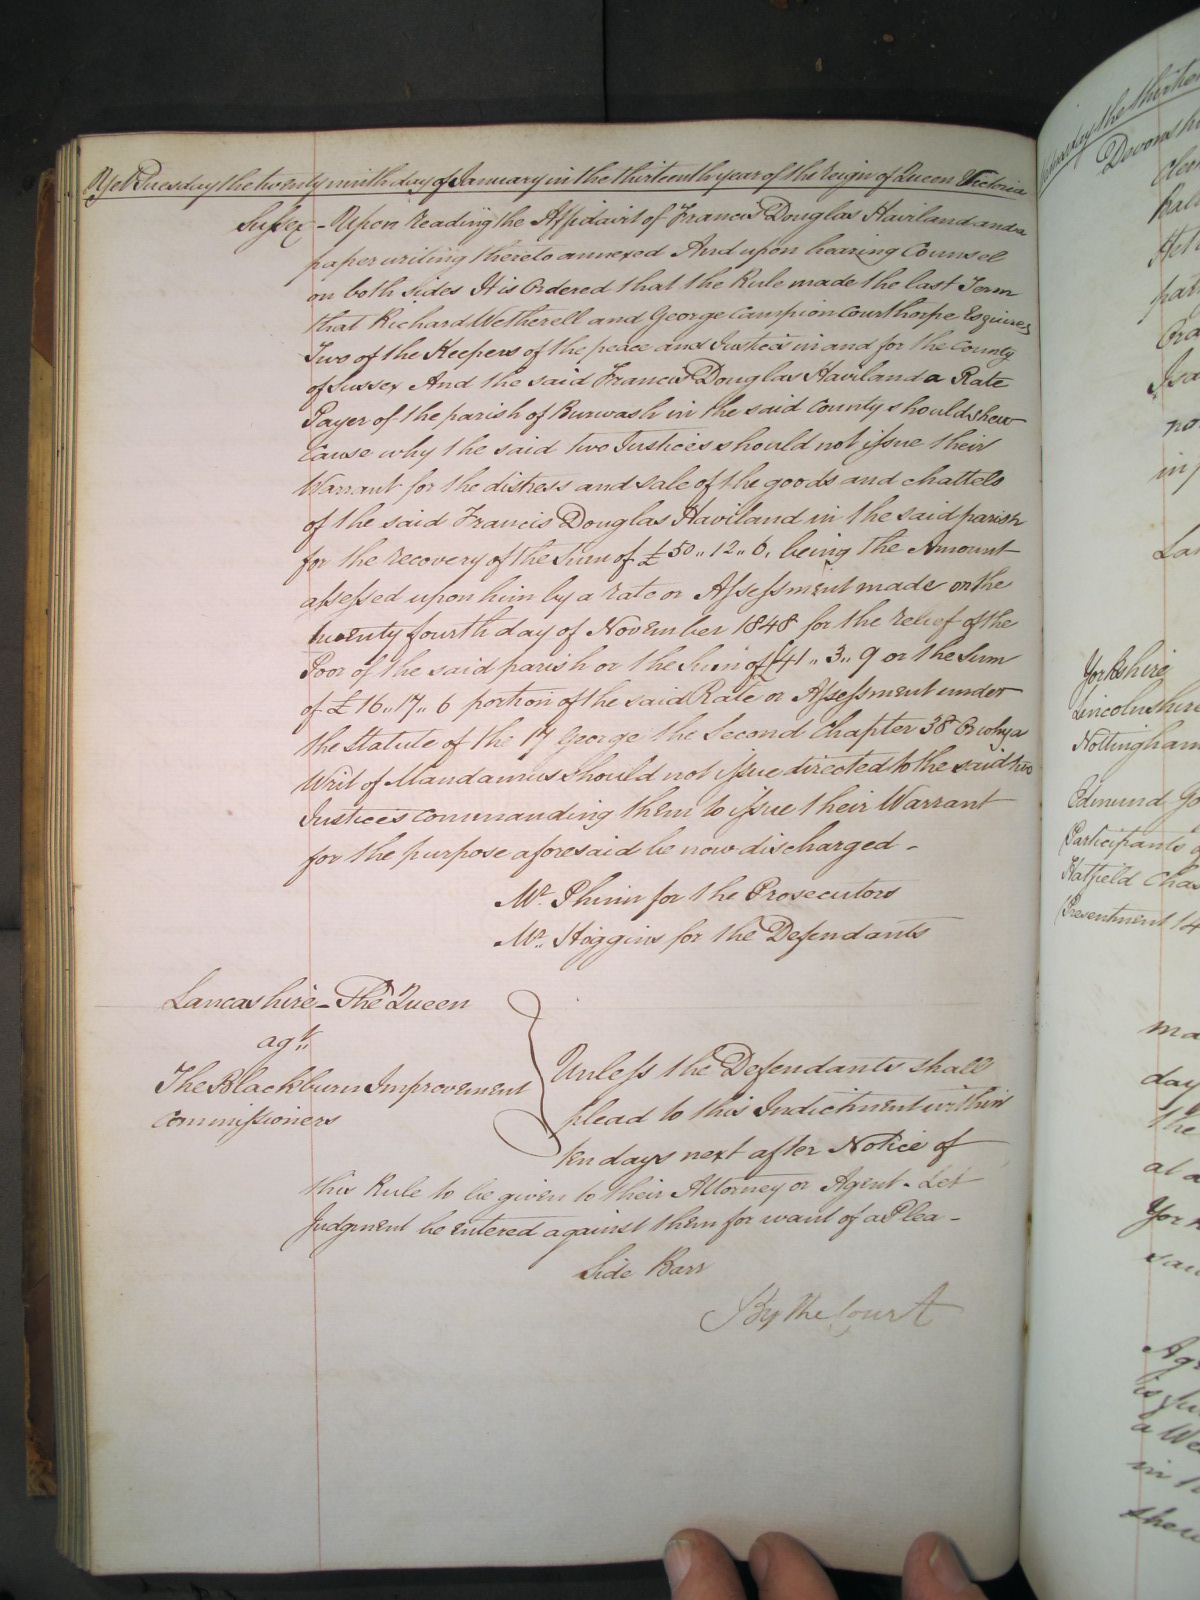 Yet Tuesday the twenty ninth day of January in the thirteenth year of the reign of Queen Victoria
Sussex - Upon reading the Affidavit of Francis Douglas Haviland and a
paper writing thereto annexed And upon hearing Counsel
on both sides It is Ordered that the Rule made the last Term
that Richard Wetherell and George Campion Courthope Esquires
Two of the Keepers of the peace and Justices in and for the County
of Sussex And the said Francis Douglas Haviland a Rate
Payer of the parish of Burwash in the said County should shew
Cause why the said two Justices should not issue their
Warrant for the distress and sale of the goods and chattels
of the said Francis Douglas Haviland in the said parish
for the recovery of the Sum of £50,, 12,, 6, being the Amount
assessed upon him by a rate or Assessment made on the
twenty fourth day of November 1848 for the relief of the
Poor of the said parish or the Sum of £41,, 3,, 9 or the Sum
of £16,, 17,, 6 portion of the said Rate or Assessment under
the Statute of the 17 George the Second Chapter 38 Or why a
Writ of Mandamus should not issue directed to the said two
Justices commanding them to issue their Warrant
for the purpose aforesaid be now discharged -
Mr. Phinn for the Prosecutors
Mr. Hoggins for the Defendants
Lancashire - The Queen
agt
The Blackburn Improvement
Commissioners
Unless the Defendants shall
plead to this Indictment within
ten days next after Notice of
this Rule to be given to their Attorney or Agent - Let
Judgment be entered against them for want of a Plea -
Side Barr
By the Court
Yorkshire
Lincolnshire
Nottingham
Edmund
Participants
Hatfield
Presentment 14
day
the
in